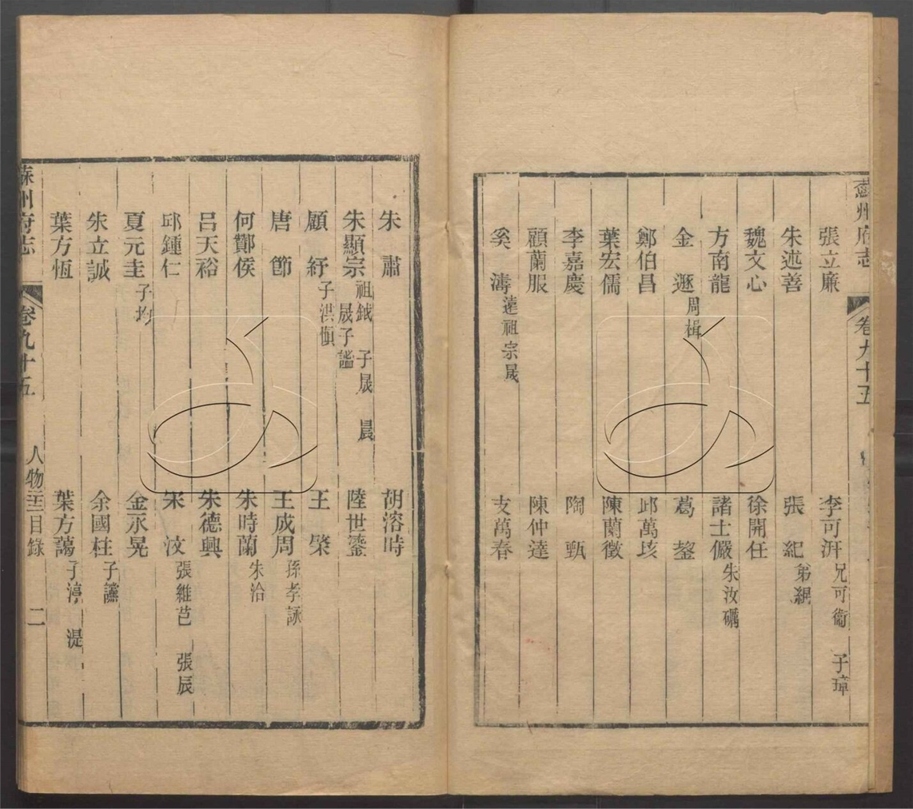 蘇州府志 卷九十五
張立廉 李可汧 兄可衛 子璋
朱述善 張紀 弟綱
魏文心 徐開任
方南龍 諸士儼 朱汝礪
金遯 周楫 葛鍪
鄭伯昌 邱萬垓
葉宏儒 陳蘭徵
李嘉慶 陶甄
顧蘭服 陳仲達
奚濤 遠祖宗晟 支萬春
朱肅 胡溶時
朱顯宗 祖鉞 子晟 晨 晟子謐 陸世鎏
顧紓 子洪愼 王檠
唐節 王成周 孫孝詠
何酇侯 朱時蘭 朱洽
呂天裕 朱德興
邱鍾仁 宋汶 張維芑 張辰
夏元圭 子均 金永晃
朱立誠 余國柱 子讌
葉方恆 葉方藹 子渟 湜
蘇州府志 卷九十五 人物目錄 二